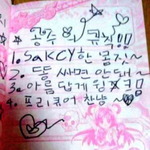 공주 규칙!!
1. SAKCY한 몸짓~
2. 똥 싸면 안돼~
3. 아름답게 윙크!
4. 프리큐어 찬양~